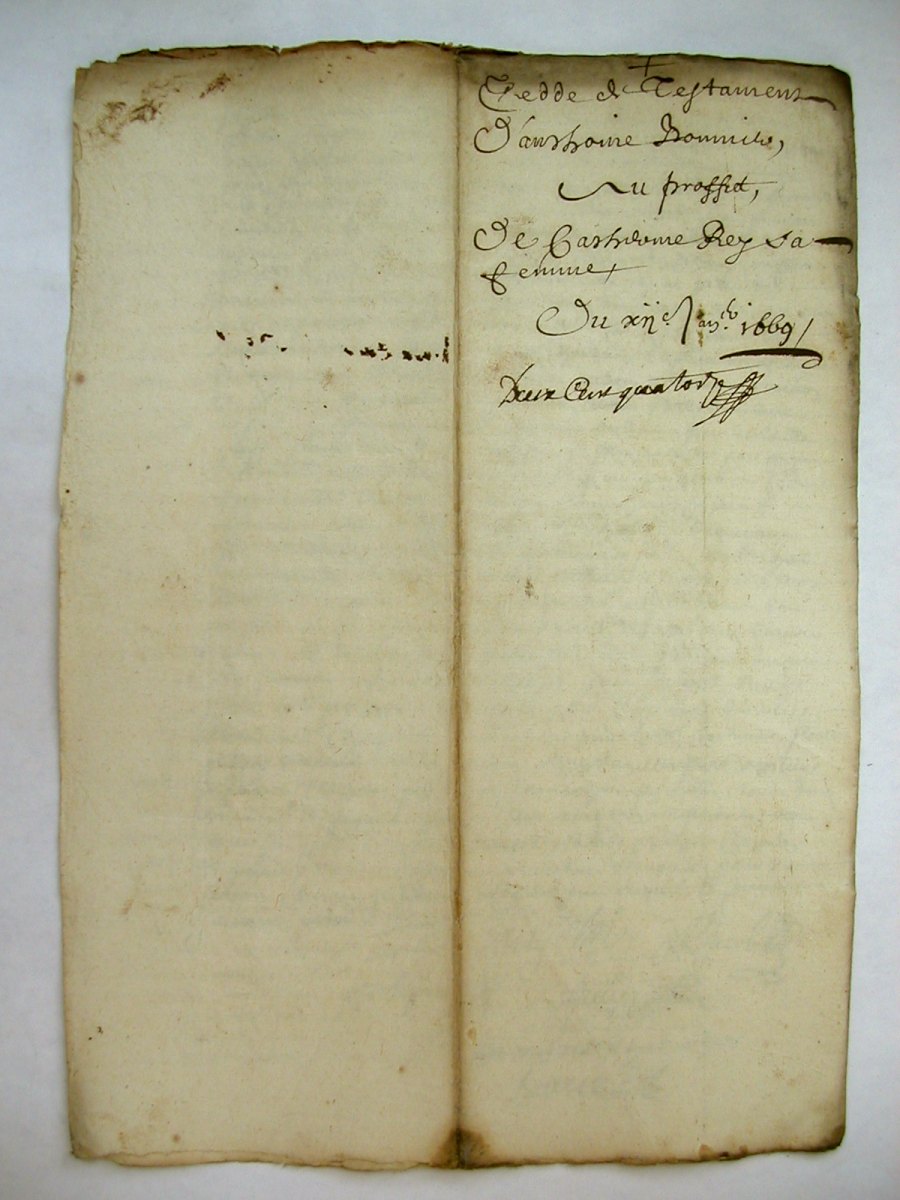 +
Cedde de Testament
D'anthoine Bonnile,
Au proffit,
De Carthérine Rey sa
femme
Du xije 1669
Deux Cens quatorze